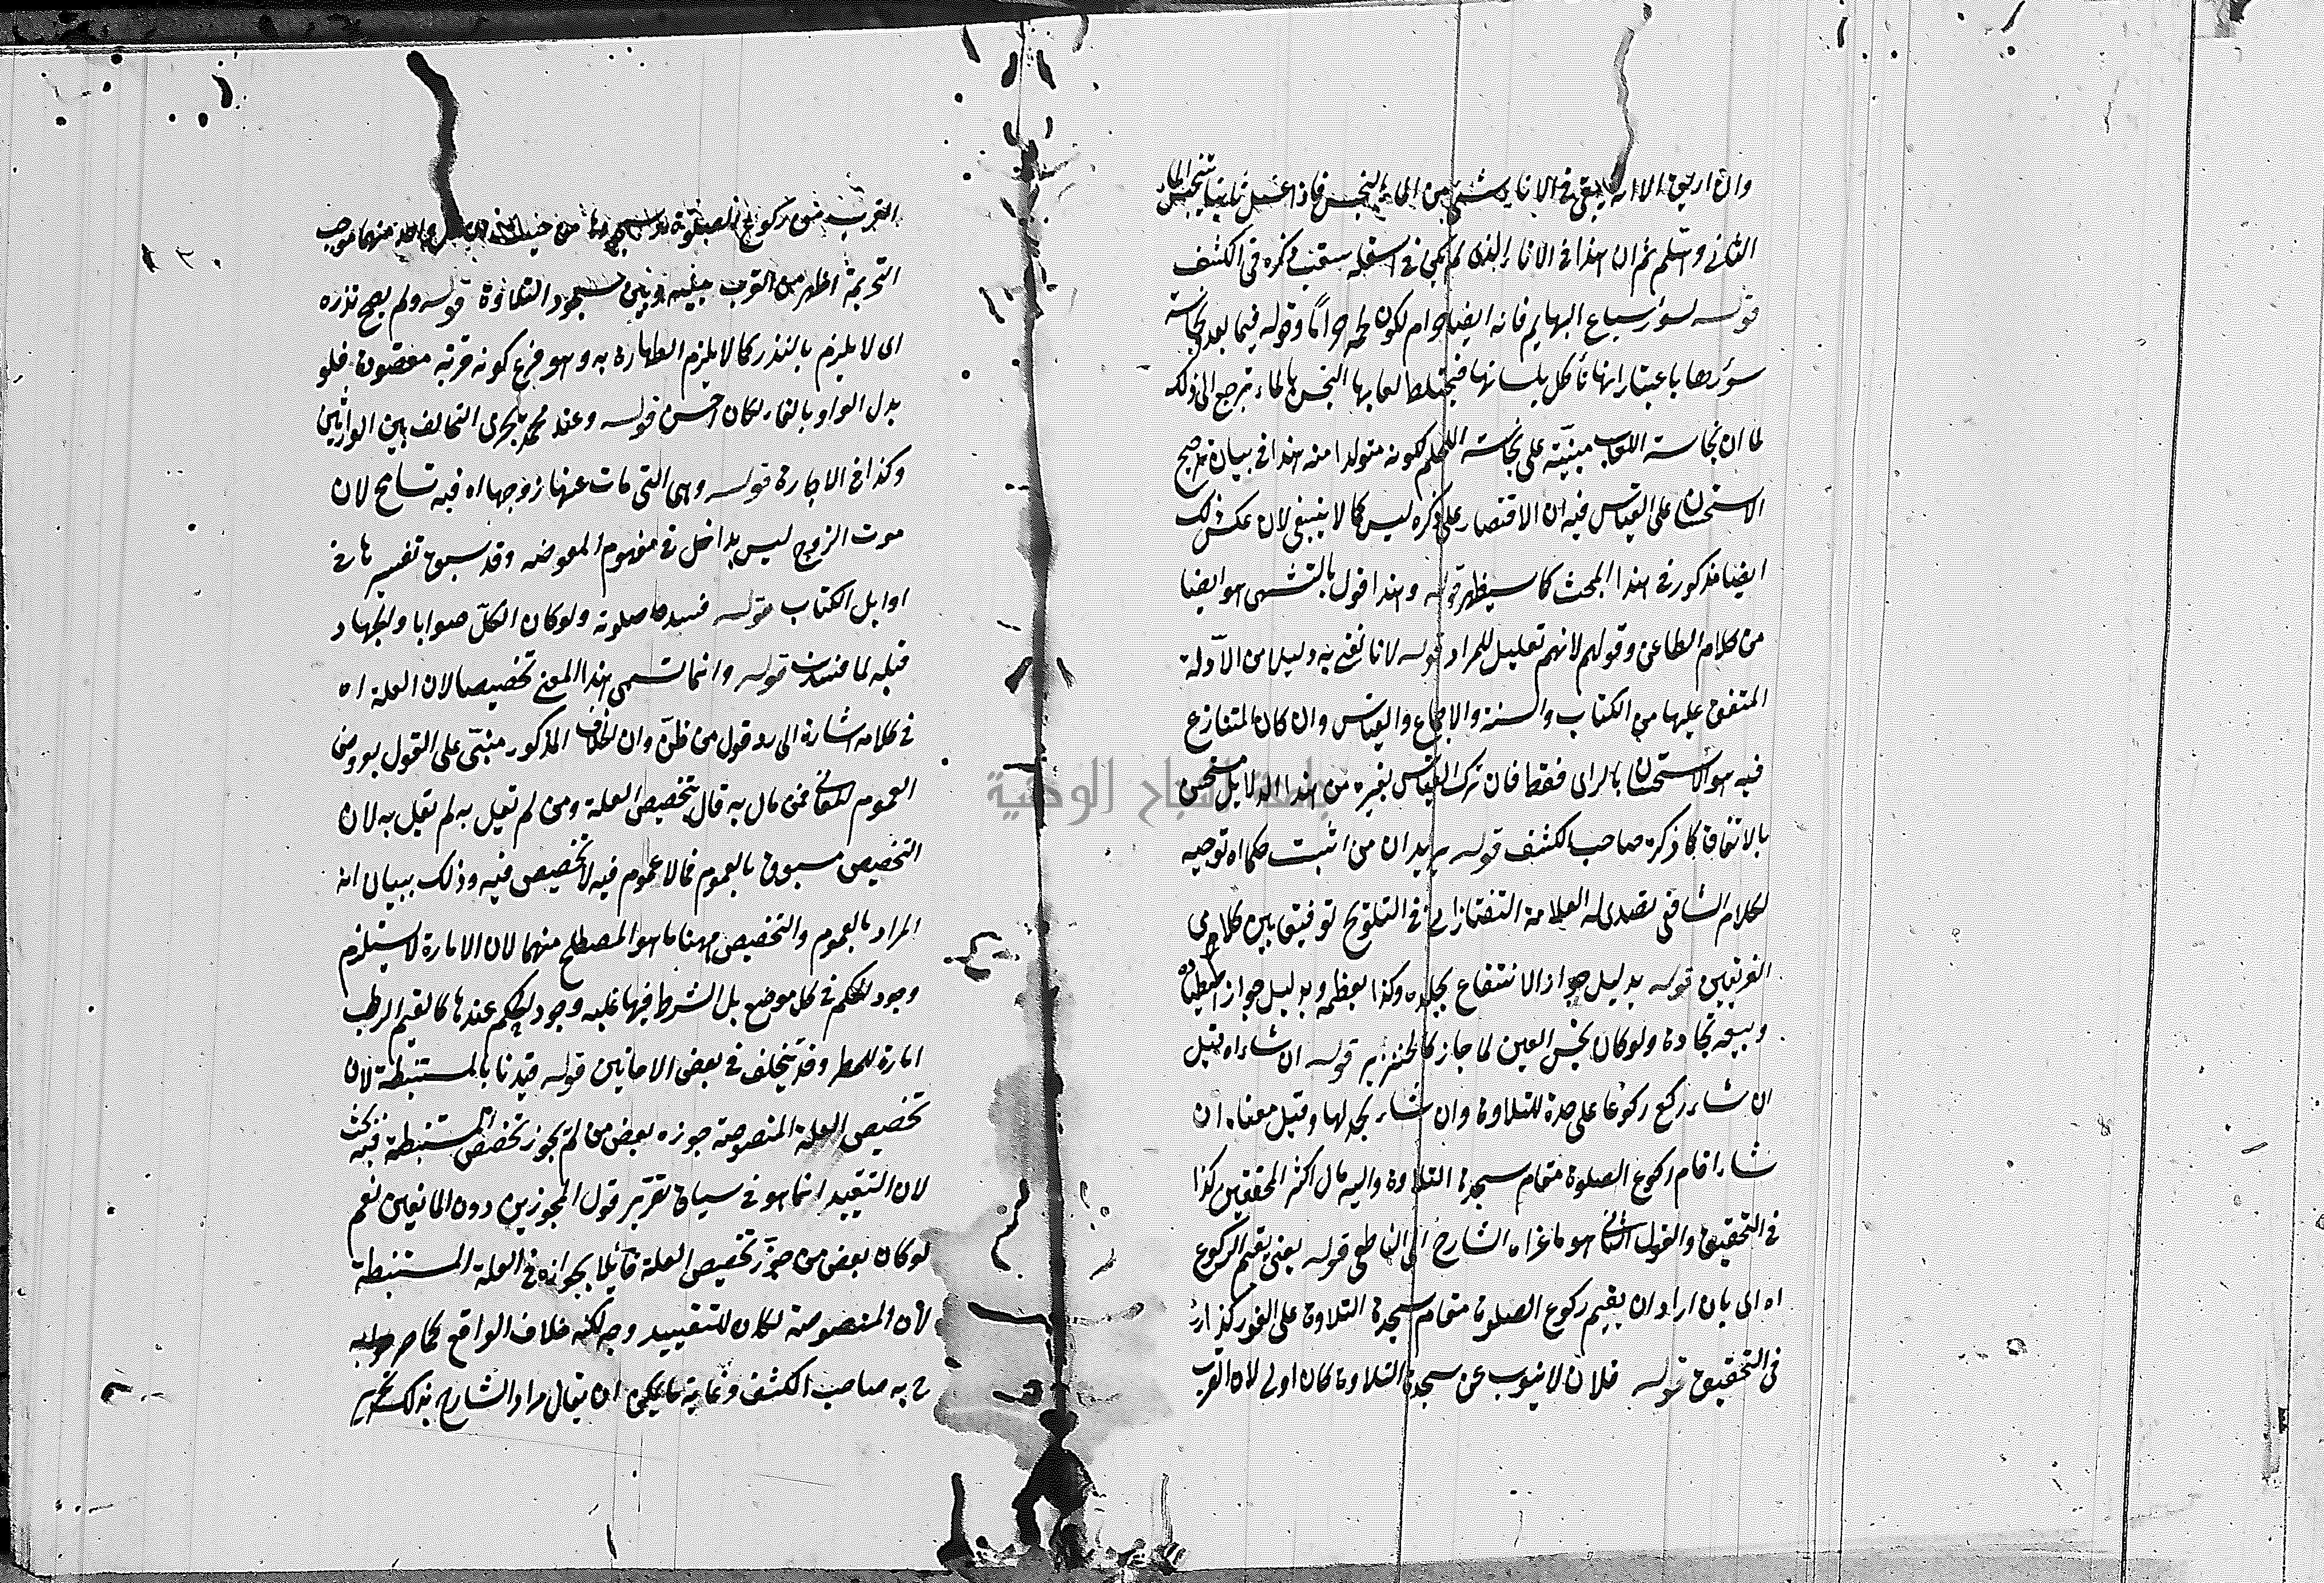 وان اريق الا انه يبقى في الاناء شئ من الماء النجس فاذا غسل ثانيا يتنجس الماء
الثاني وهلم ثم ان هذا في الاناء الذي لم يكن في اسفله ستقب ذكره في الكشف
قوله لسؤر سباع البهايم فانه ايضا حرام لكون لحمه حراما وقوله فيما بعد نجاسة
سؤرها باعتبار انها تأكل بلسانها فيختلط لعابها النجس بالماء ترجع الى ذلك
لما ان نجاسة اللعاب مبنية على نجاسة اللحم لكونه متولدا منه هذا في بيان ترجيح
الاستحسان على القياس فيه ان الاقتصار على ذكره ليس كما لا ينبغي لان عكس ذلك
ايضا مذكور في هذا المبحث كما سيظهر قوله وهذا قول بالتشهي هو ايضا
من كلام الطاعن وقولهم لانهم تعليل للمراد قوله لانا نعني به دليلا من الادلة
المتفق عليها من الكتاب والسنة والاجماع والقياس وان كان المتنازع
فيه هو الاستحسان بالراى فقط فان ترك القياس بغيره من هذا الدلايل مستحسن
بالاتفاق كما ذكره صاحب الكشف قوله يريد ان من اثبت حكما اه توجيه
لكلام الشافعي تصدى له العلامة التفتازاني في التلويح توفيق بين كلامي
الفريقين قوله بدليل جواز الانتفاع بجلده وكذا بعظمه وبدليل جواز اصطياده
وبيعه تجارة ولو كان نجس العين لما جاز كالخنزير قوله ان شاء اه قيل
ان شاء ركع ركوعا على حدة للتلاوة وان شاء سجد لها وقيل معناه ان
شاء اقام ركوع الصلوة مقام سجدة التلاوة واليه مال اكثر المحققين كذا
في التحقيق والقول الثاني هو ما عزاه الشارح الى الناطفي قوله يعني يقيم الركوع
اه اي بان اراد ان يقيم ركوع الصلوة مقام سجدة التلاوة على الفور كذا
في التحقيق قوله فلان لا ينوب عن سجدة التلاوة كان اولى لان القرب
القرب من ركوع الصلوة وسجودها من حيث ان كل واحد منهما موجب
التحريمة اظهر من القرب بينه وبين سجود التلاوة قوله ولم يصح نذره
اى لا يلزم بالنذر كما لا يلزم الطهارة به وهو فرع كونه قربة مقصودة فلو
بدل الواو بالفاء لكان احسن قوله وعند محمد يجرى التحالف بين الوارثين
وكذا في الاجارة قوله وهي التي مات عنها زوجها اه فيه تسامح لان
موت الزوج ليس بداخل في مفهوم المفوضه وقد سبق تفسيرها في
اوايل الكتاب قوله فسدت صلوته ولو كان الكل صوابا والجهاد
قبله لما فسدت قوله وانما تسمى هذا المعنى تخصيصا لان العلة اه
في كلامه اشارة الى رد قول من ظن وان الخلاف المذكور مبنى على القول بعروض
العموم للمعاني فمن مال به قال بتخصيص العلة ومن لم تقل به لم تقل به لان
التخصيص مسبوق بالعموم فما لا عموم فيه لا تخصيص فيه وذلك ببيان انه
المراد بالعموم والتخصيص ههنا ما هو المصطلح منهما لان الامارة لا يستلزم
وجود الحكم في كل موضع بل الشرط فيها غلبه وجود الحكم عندها كالغيم الرطب
امارة للمطر وقد يتخلف في بعض الاحايين قوله قيدنا بالمستنبطة لان
تخصيص العلة المنصوصة جوزه بعض من لم يجوز تخصيص المستنبطة فيه بحث
لان التقييد انما هو في سياق تقرير قول المجوزين دون المانعين نعم
لو كان بعض من جوز تخصيص العلة قايلا بجوازه في العلة المستنبطة
دون المنصوصة لكان للتقييد وجه لكنه خلاف الواقع كما صرح
ح به صاحب الكشف وغاية ما يمكن ان يقال مراد الشارح بذلك
جامعة النجاح الوطنية